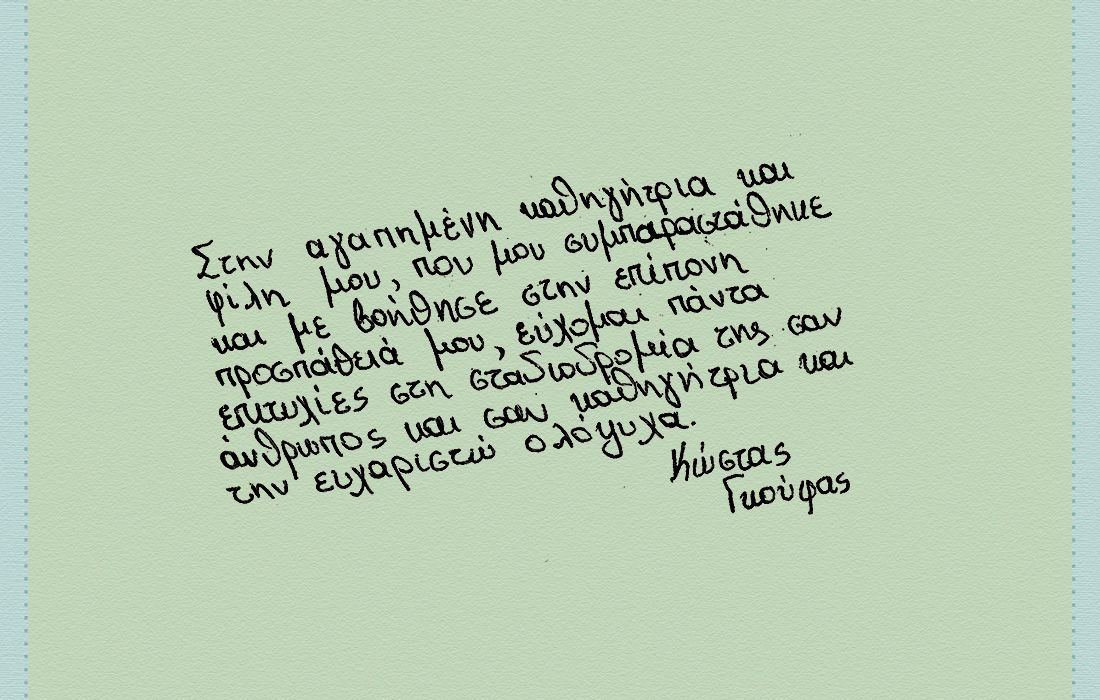 Στην αγαπημένη καθηγήτρια και
φίλη μου, που μου συμπαραστάθηκε
και με βοήθησε στην επίπονη
προσπάθειά μου, εύχομαι πάντα
επιτυχίες στη σταδιοδρομία της σαν
άνθρωπος και σαν καθηγήτρια και
την ευχαριστώ ολόψυχα.
Κώστας
Γκούφας